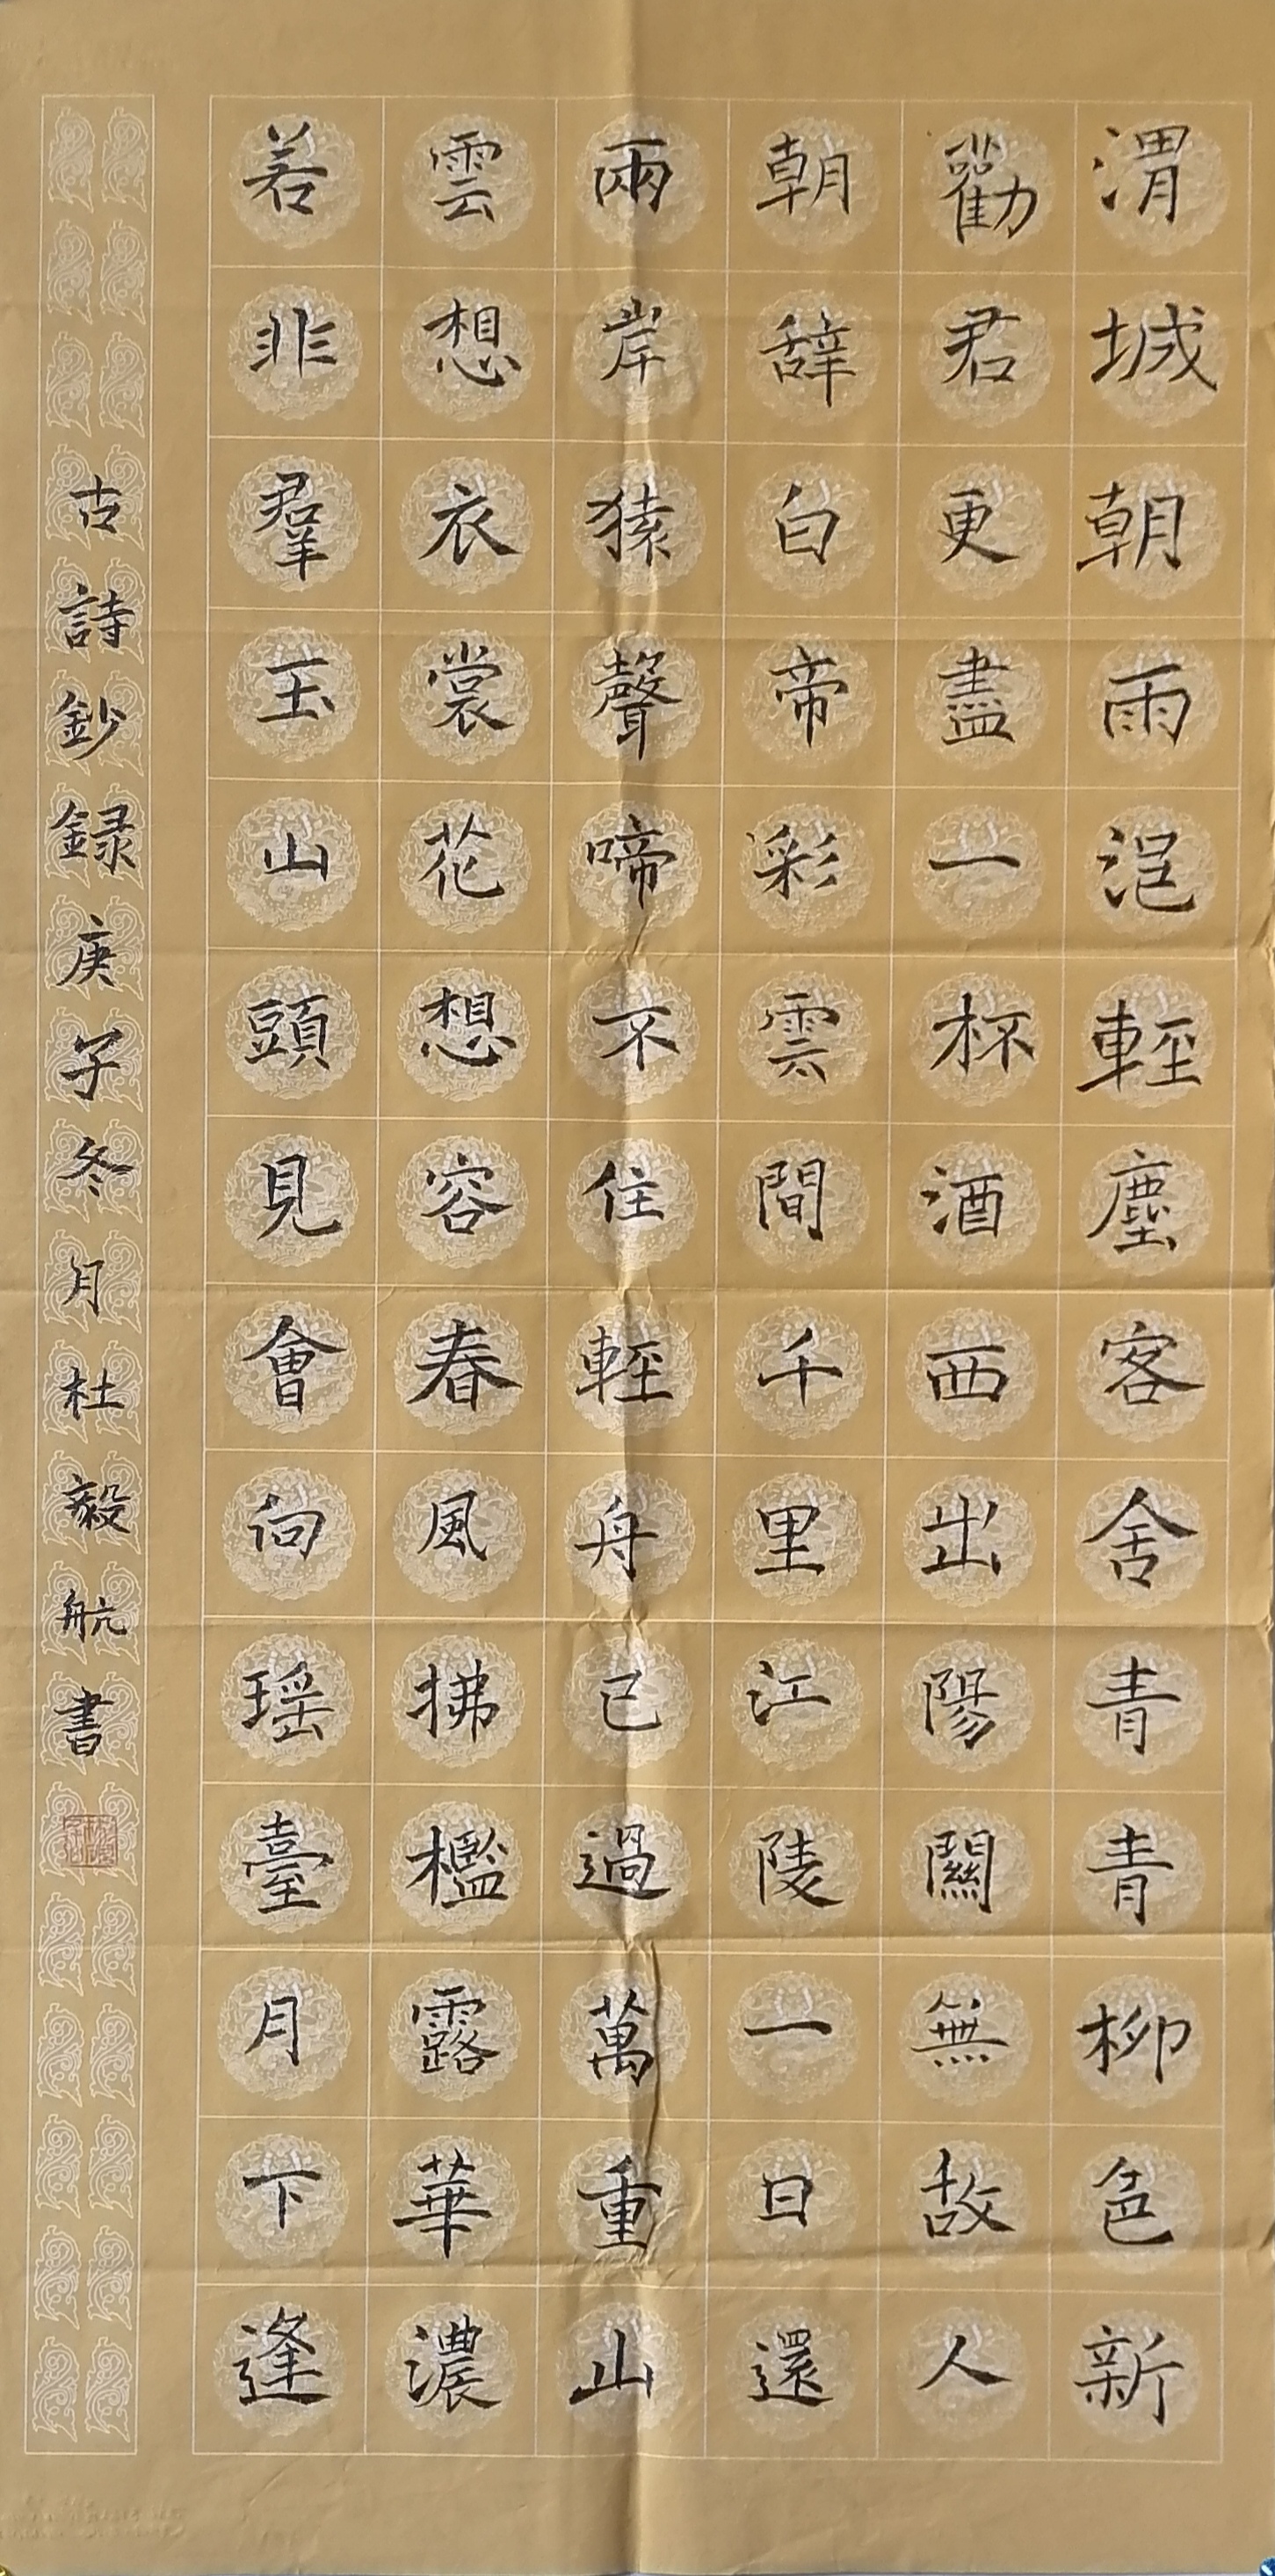 渭城朝雨浥輕塵客舍青青柳色新
勸君更盡一杯酒西出陽關無故人
朝辭白帝彩雲間千里江陵一日還
兩岸猿聲啼不住輕舟已過萬重山
雲想衣裳花想容春風拂檻露華濃
若非羣玉山頭見會向瑶臺月下逢
古詩鈔録庚子冬月杜毅航書